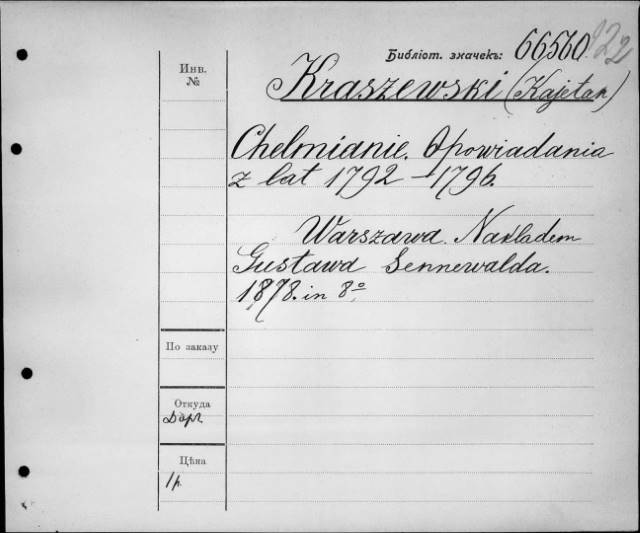 Библіот. значекъ: 66560
Инв.
№
Kraszewski (Kajetan)
Chelmianie. Opowiadania
z lat 1792–1796.
Warszawa. Nakladem
Gustawa Sennewalda.
1878. in 8º
По заказу
Откуда
Цѣна
1р.